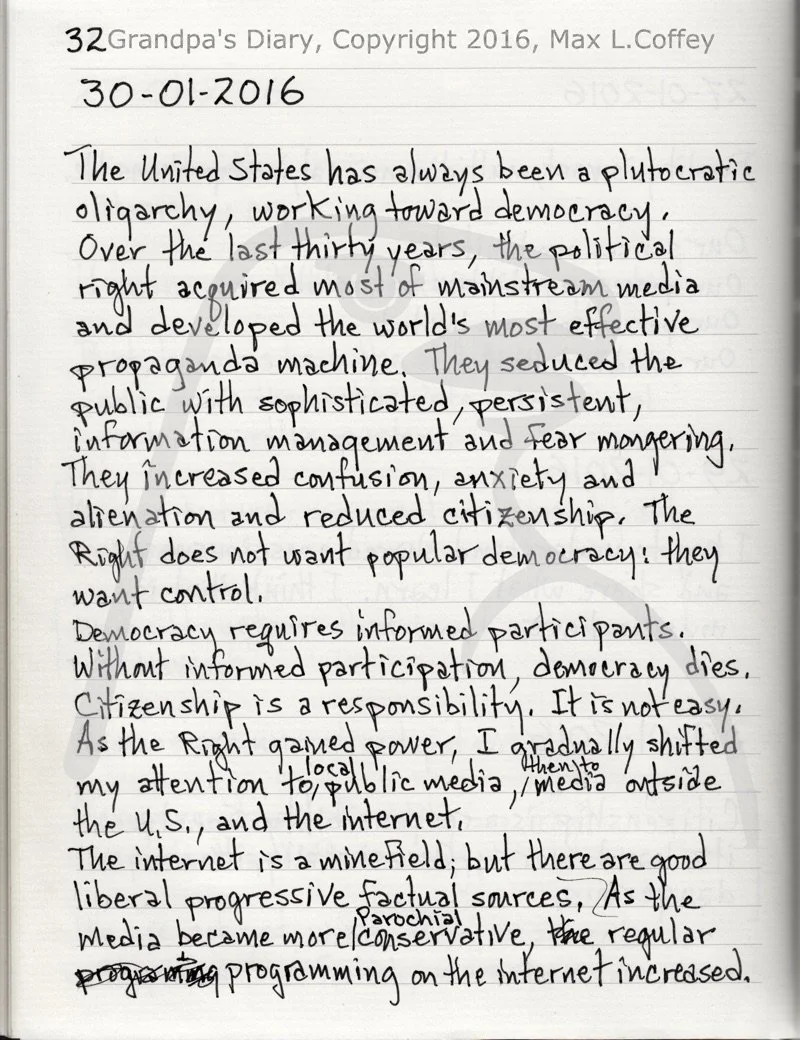 32 Grandpa's Diary, Copyright 2016, Max L.Coffey
30-01-2016
The United States has always been a plutocratic
oligarchy, working toward democracy.
Over the last thirty years, the political
right acquired most of mainstream media
and developed the world's most effective
propaganda machine. They seduced the
public with sophisticated, persistent,
information management and fear mongering.
They increased confusion, anxiety and
alienation and reduced citizenship. The
Right does not want popular democracy: they
want control.
Democracy requires informed participants.
Without informed participation, democracy dies.
Citizenship is a responsibility. It is not easy.
As the Right gained power, I gradually shifted
my attention to, local public media, then to media outside
the U.S., and the internet.
The internet is a minefield; but there are good
liberal progressive factual sources. As the
media became more Parochial conservative, the regular
programming on the internet increased.